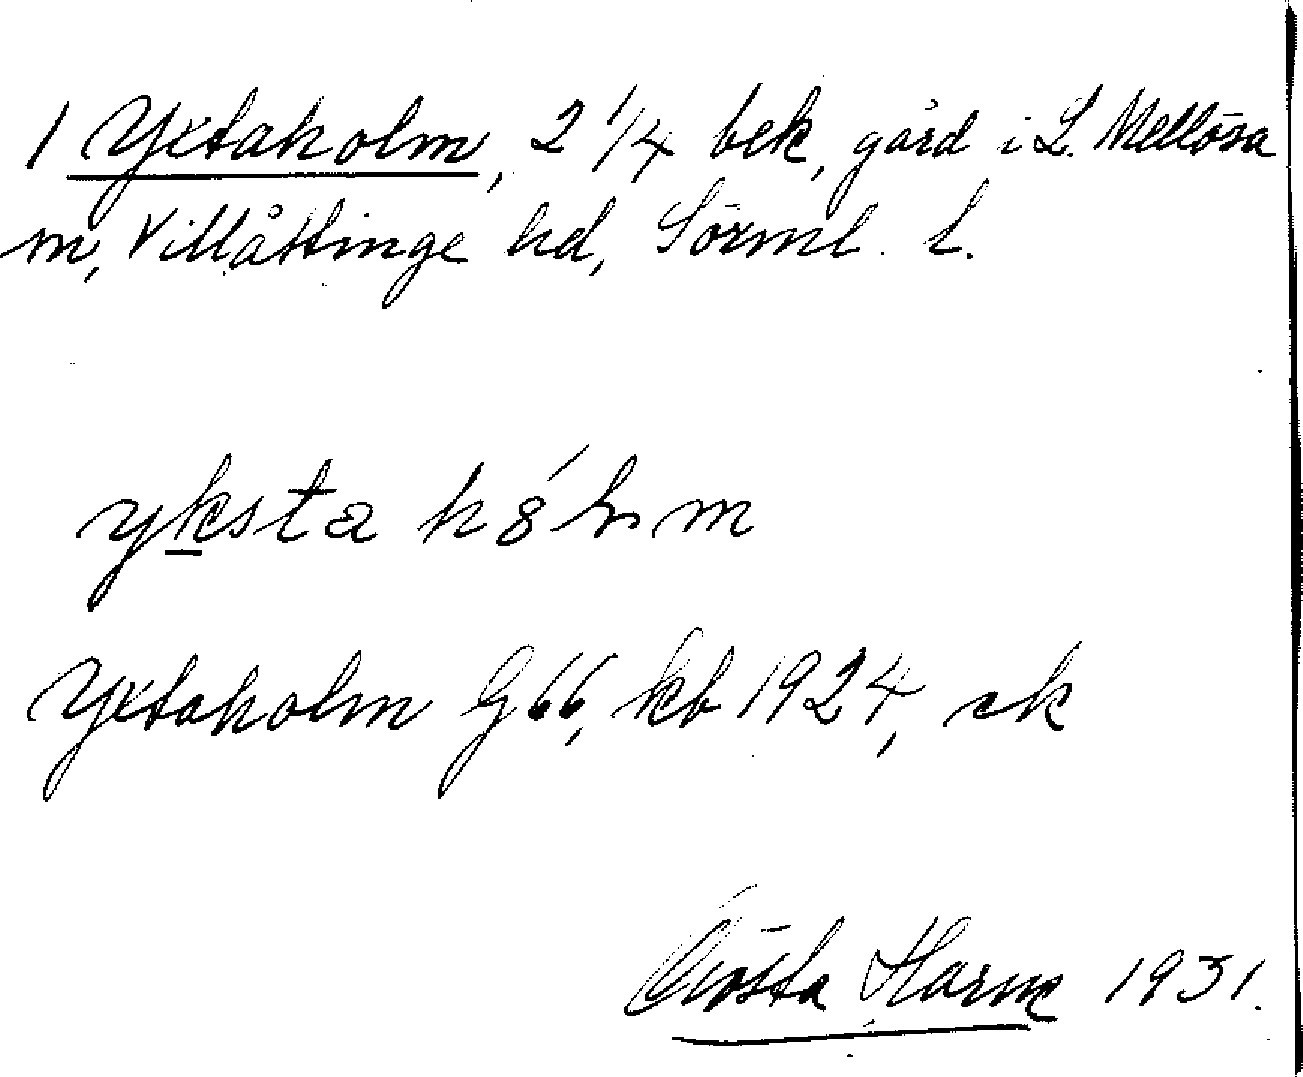 1 Yxtaholm, 2 1/4 bek, gård i L. Mellösa
sn, Villåttinge hd, Sörml. l.
yksta
Yxtaholm G66, kb 1924, sk
Gösta Harme 1931.